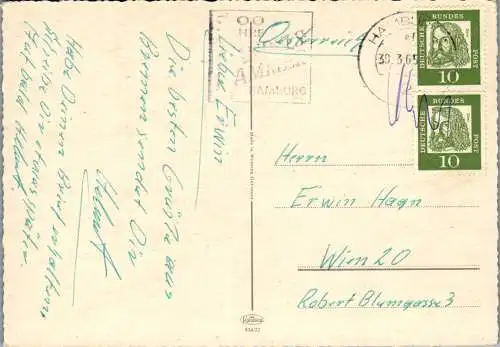 Lieber Erwin
Die besten Grüße aus
Bremen sendet Dir
Helmut
Habe Deinen Brief erhalten,
schreibe Dir etwas später.
Auf bald Helmut.
Österreich
Herrn
Erwin Hagn
Wien 20
Robert Blumgasse 3
HAMBURG
30.3.65
DEUTSCHE BUNDESPOST
10
DEUTSCHE BUNDESPOST
10